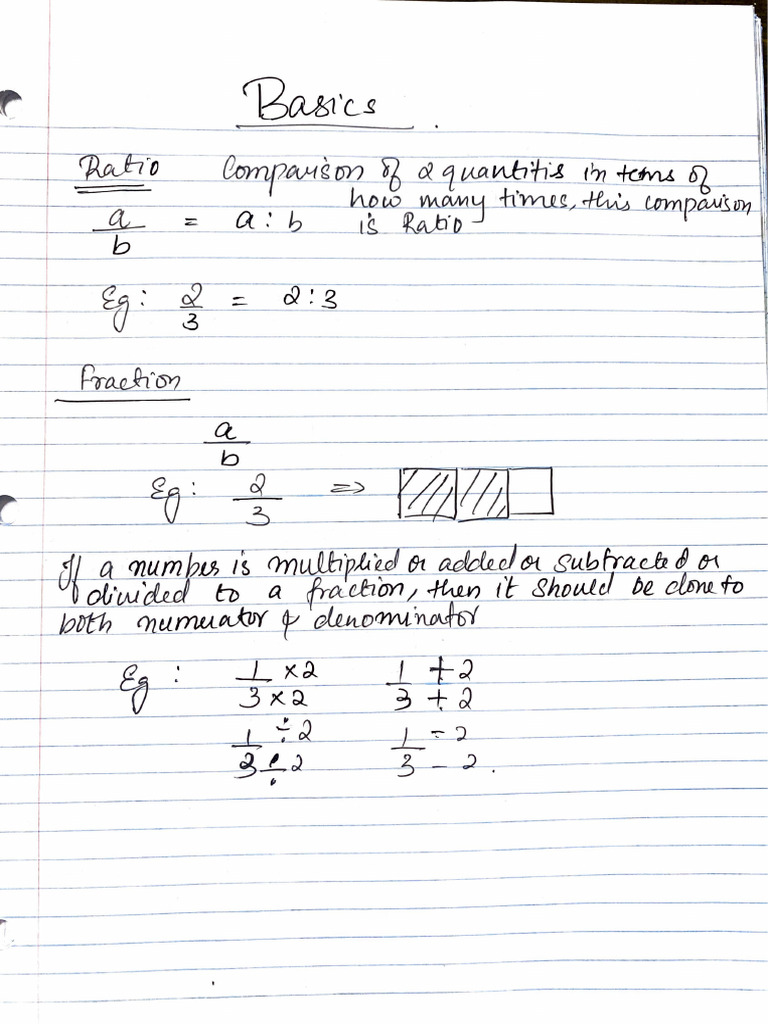 Basics
Ratio Comparison of 2 quantitis in tems of
how many times, this comparison
a/b = a : b is Ratio
Eg : 2/3 = 2 : 3
Fraction
a/b
Eg : 2/3 ⇒
If a number is multiplied or added or subtracted or
divided to a fraction, then it should be done to
both numerator & denominator
Eg : 1 × 2 / 3 × 2 1 + 2 / 3 + 2
1 ÷ 2 / 3 ÷ 2 1 - 2 / 3 - 2 .